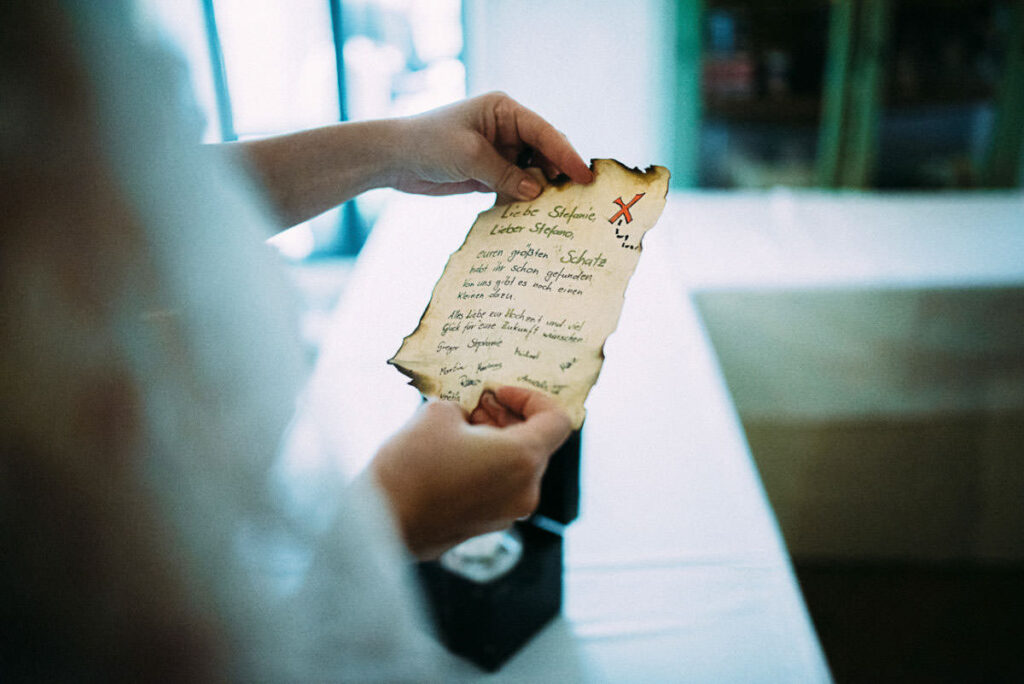 Liebe Stefanie,
Lieber Stefano,
euren größten Schatz
habt ihr schon gefunden,
von uns gibt es noch einen
kleinen dazu.
Alles Liebe zur Hochzeit und viel
Glück für eure Zukunft wünschen
Gregor Stephanie Michael
Martin